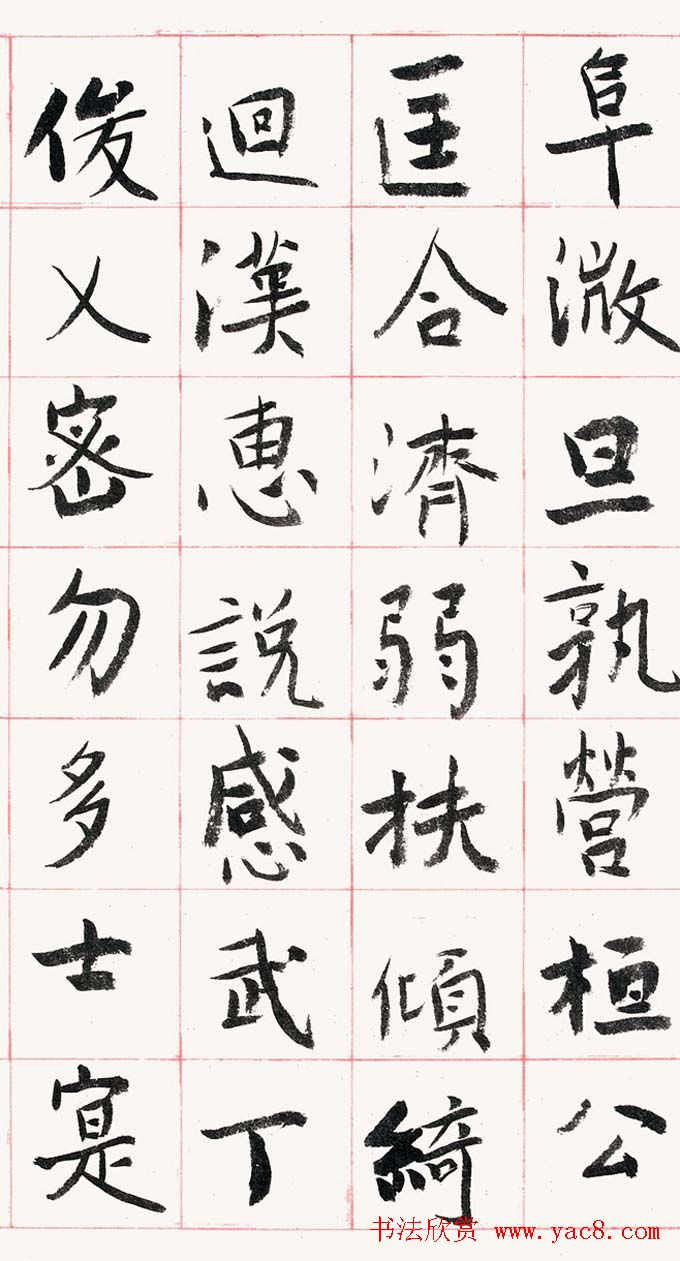 阜微旦孰營桓公
匡合濟弱扶傾綺
迴漢惠說感武丁
俊乂密勿多士寔
书法欣赏 www.yac8.com